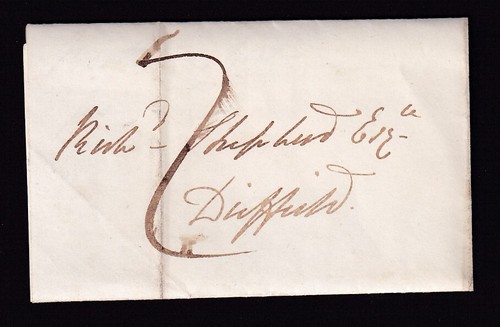 Richd Shepherd Esqre
Driffield.
2